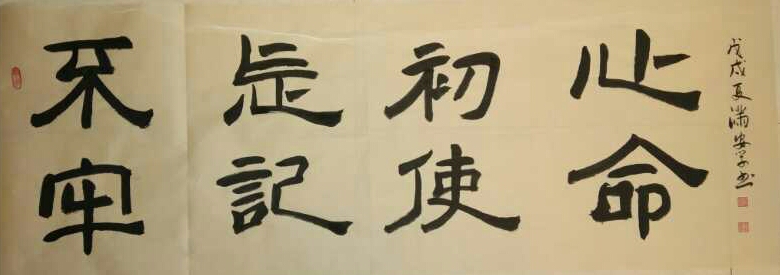 不忘初心
牢記使命
戊戌夏满安学书